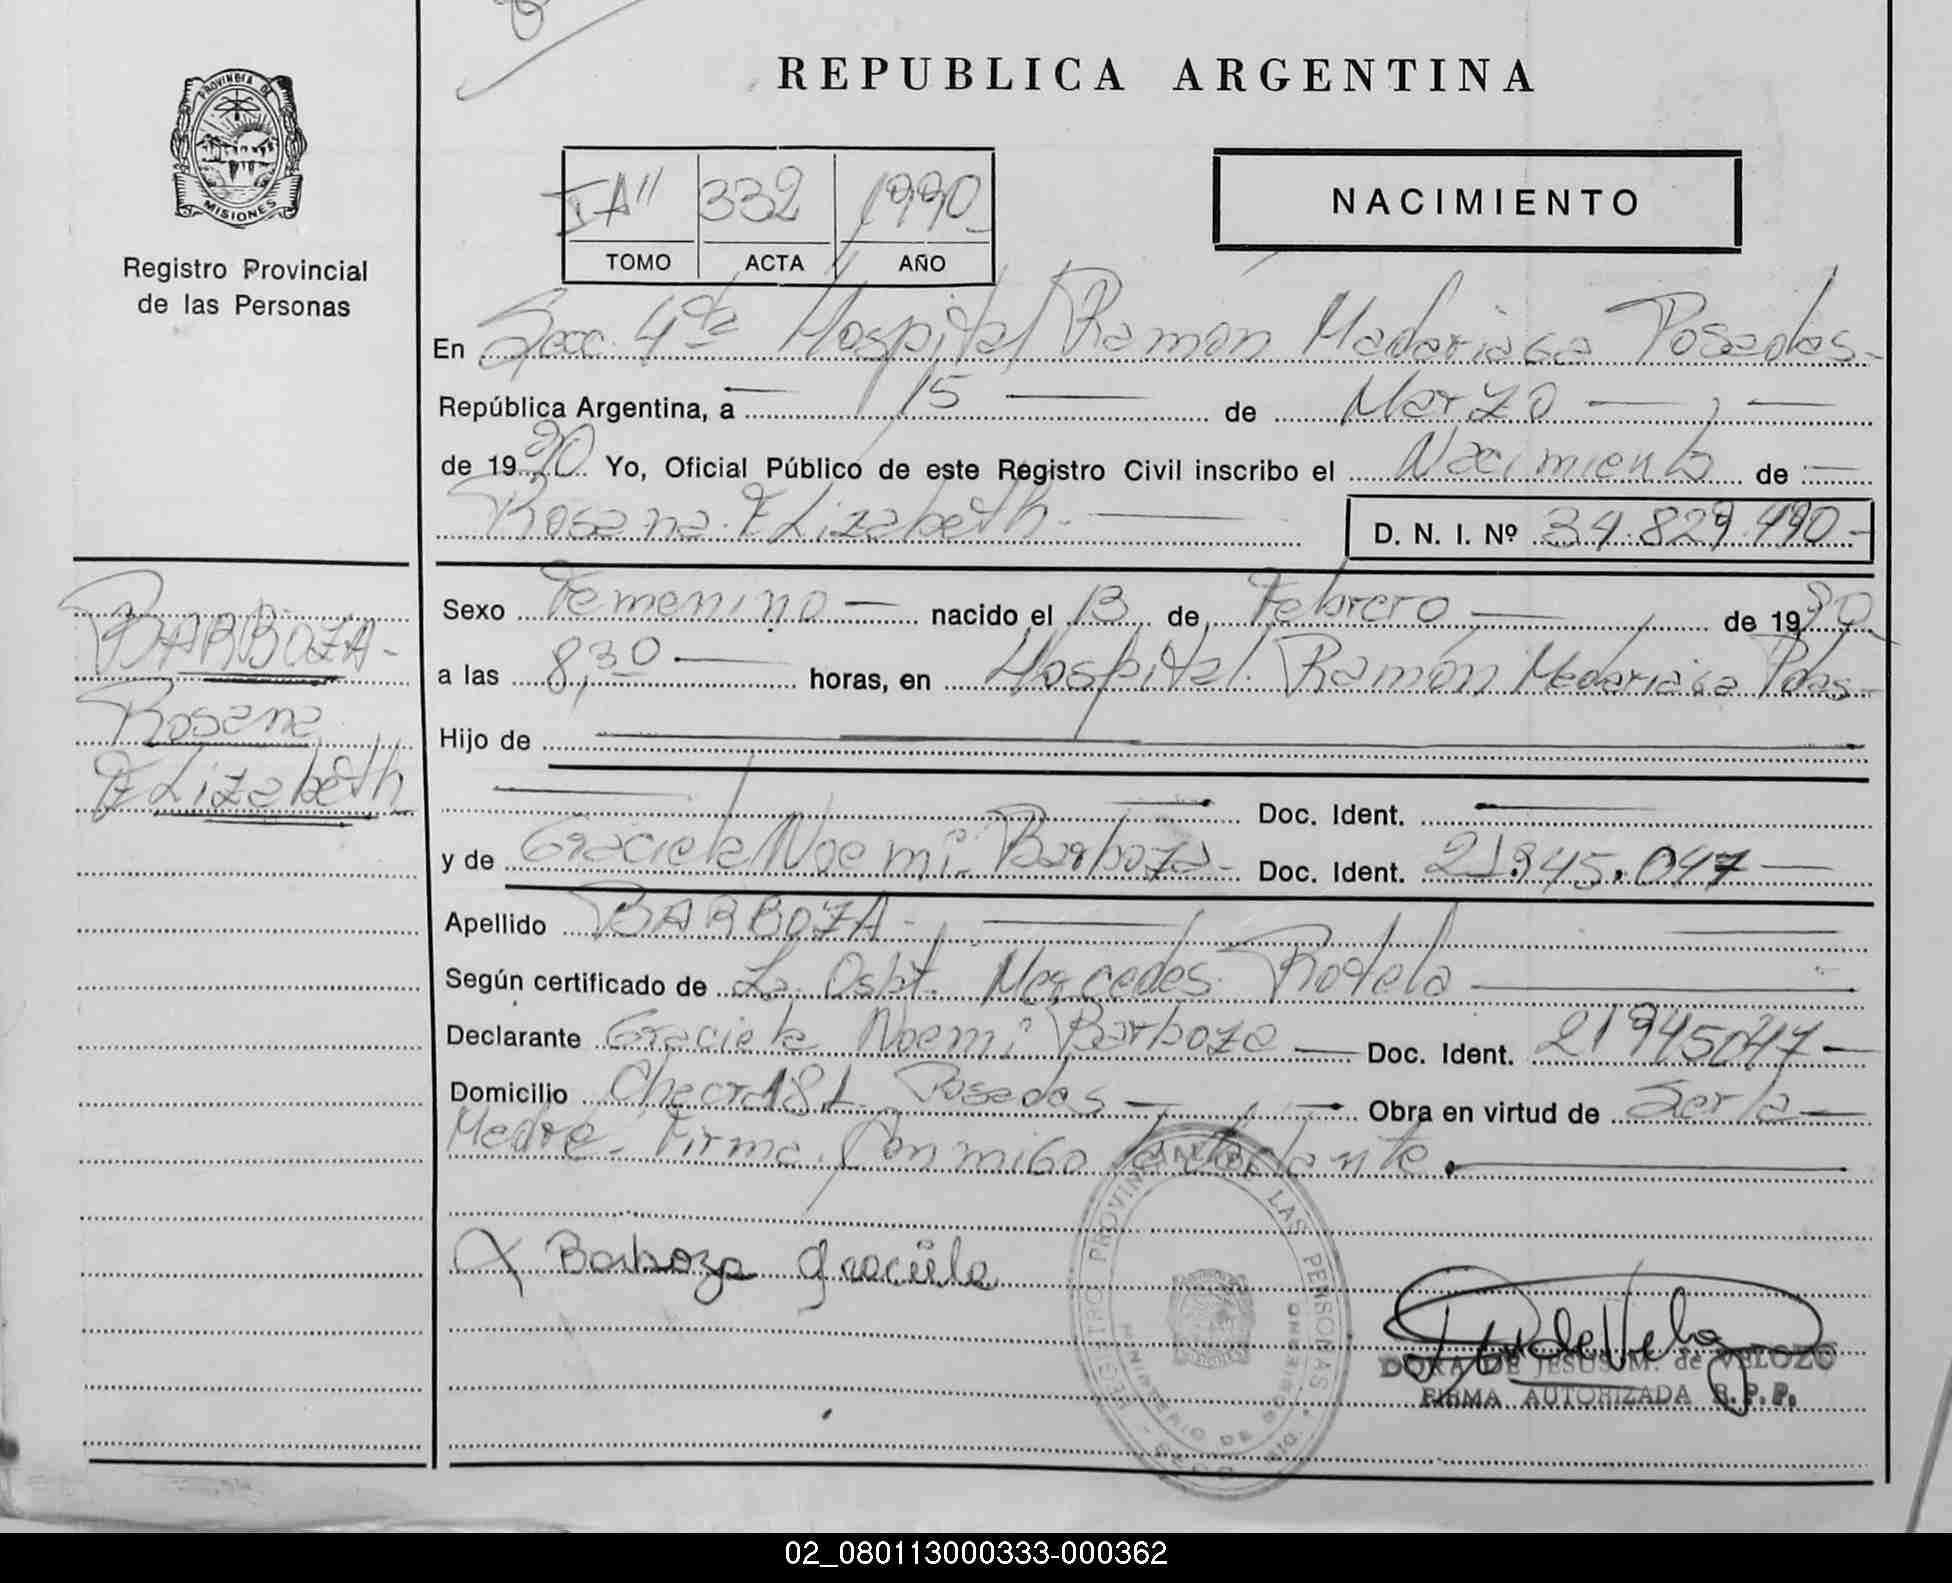 REPUBLICA ARGENTINA
PROVINCIA DE
MISIONES
Registro Provincial
de las Personas
332 1990
TOMO ACTA AÑO
NACIMIENTO
En Secc. 4ta Hospital Ramón Madariaga Posadas-
República Argentina, a 15 de Marzo
de 1990 Yo, Oficial Público de este Registro Civil inscribo el Nacimiento de
Rosana Elizabeth.
D. N. I. Nº 34.829.490-
BARBOZA-
Rosana
Elizabeth
Sexo Femenino nacido el 13 de Febrero de 1990
a las 8,30 horas, en Hospital Ramón Madariaga Pdas-
Hijo de
Doc. Ident.
y de Graciela Noemi Barboza- Doc. Ident. 21.945.047
Apellido BARBOZA-
Según certificado de La Obst. Mercedes Rotela
Declarante Graciela Noemi Barboza Doc. Ident. 21945047
Domicilio Chacra 181 Posadas Obra en virtud de Ser la
Madre- Firma Conmigo la
Barboza Graciela
PROVINCIAL DE LAS PERSONAS
MINISTERIO DE GOBIERNO
DORA DE JESUS M. de VELOZO
FIRMA AUTORIZADA R.P.P.
02_080113000333-000362